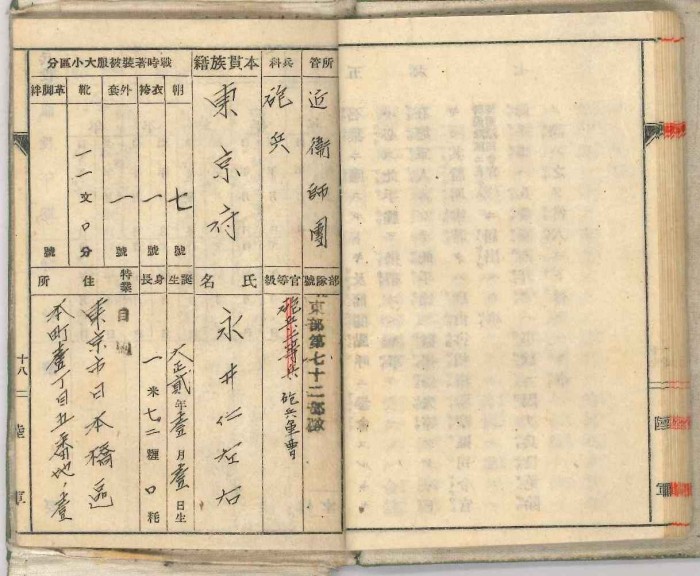 所管
近衞師團
部隊號
東部第七十二部隊
兵科
砲兵
官等級
砲兵上等兵 砲兵軍曹
本貫族籍
東京府
氏名
永井仁左右
戰時著裝被服大小區分
帽
七號
誕生
大正貳年壹月壹日生
衣袴
一號
身長
一米七二糎〇粍
外套
一號
特業
自
靴
一一文〇分
革脚絆
號
住所
東京市日本橋區
本町壹丁目五番地ノ壹
十八
陸軍
陸軍